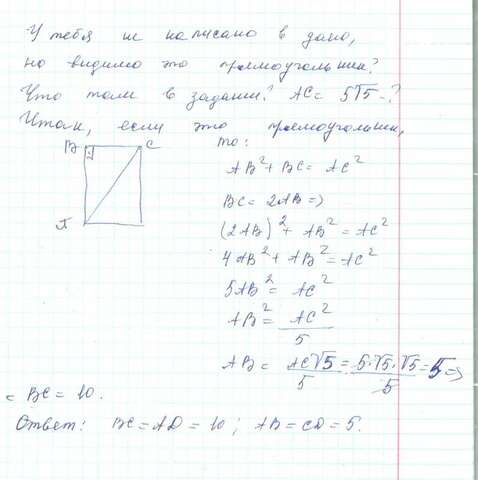 У тебя не написано в дано,
но видимо это прямоугольник?
Что там в задании? AC = 5√5 -?
Итак, если это прямоугольник,
то:
B C
A
AB² + BC = AC²
BC = 2AB =>
(2AB)² + AB² = AC²
4AB² + AB² = AC²
5AB² = AC²
AB² = AC²/5
AB = AC√5/5 = 5·√5·√5/5 = 5 =>
BC = 10.
Ответ: BC = AD = 10; AB = CD = 5.